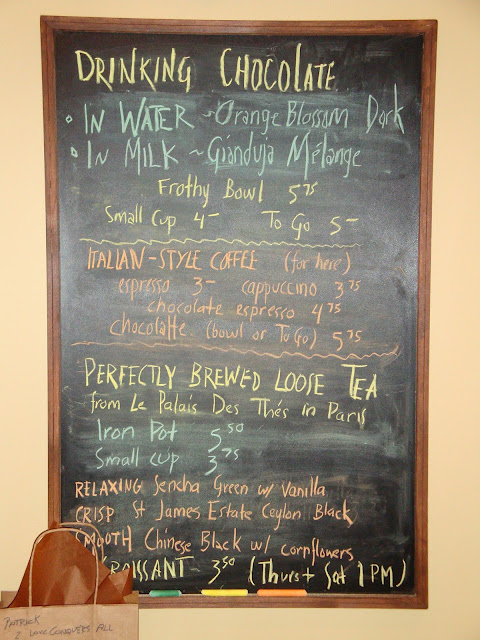 DRINKING CHOCOLATE
◦ IN WATER ~ Orange Blossom Dark
◦ IN MILK ~ Gianduja Mélange
Frothy Bowl 5 75
Small Cup 4 - To Go 5 -
ITALIAN-STYLE COFFEE (for here)
espresso 3 - cappuccino 3 75
chocolate espresso 4 75
chocolatte (bowl or To Go) 5 75
PERFECTLY BREWED LOOSE TEA
from Le Palais Des Thés in Paris
Iron Pot 5 50
Small cup 3 75
RELAXING Sencha Green w/ Vanilla
CRISP St James Estate Ceylon Black
SMOOTH Chinese Black w/ cornflowers
CROISSANT 3 50 (Thurs + Sat 1 PM)
PATRICK
LOVE CONQUERS ALL